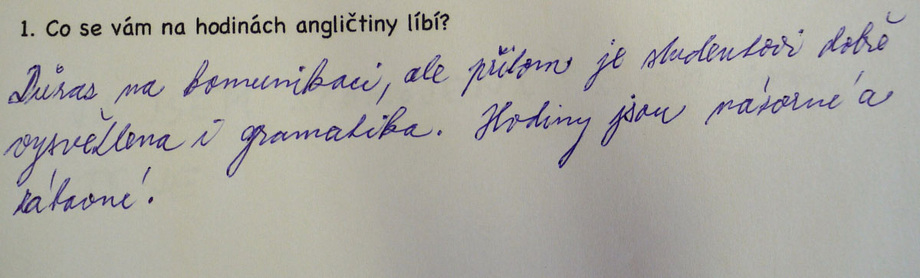 1. Co se vám na hodinách angličtiny líbí?
Důraz na komunikaci, ale přitom je studentovi dobře
vysvětlena i gramatika. Hodiny jsou názorné a
zábavné.